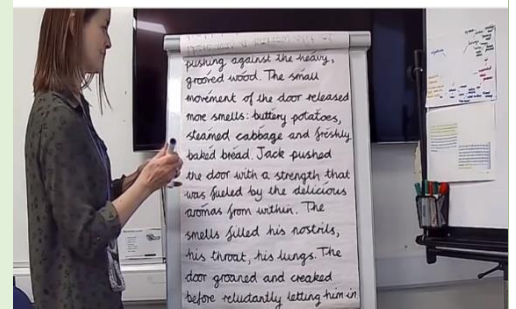 pushing against the heavy,
grooved wood. The small
movement of the door released
more smells: buttery potatoes,
steamed cabbage and freshly
baked bread. Jack pushed
the door with a strength that
was fueled by the delicious
aromas from within. The
smells filled his nostrils,
his throat, his lungs. The
door groaned and creaked
before reluctantly letting him in